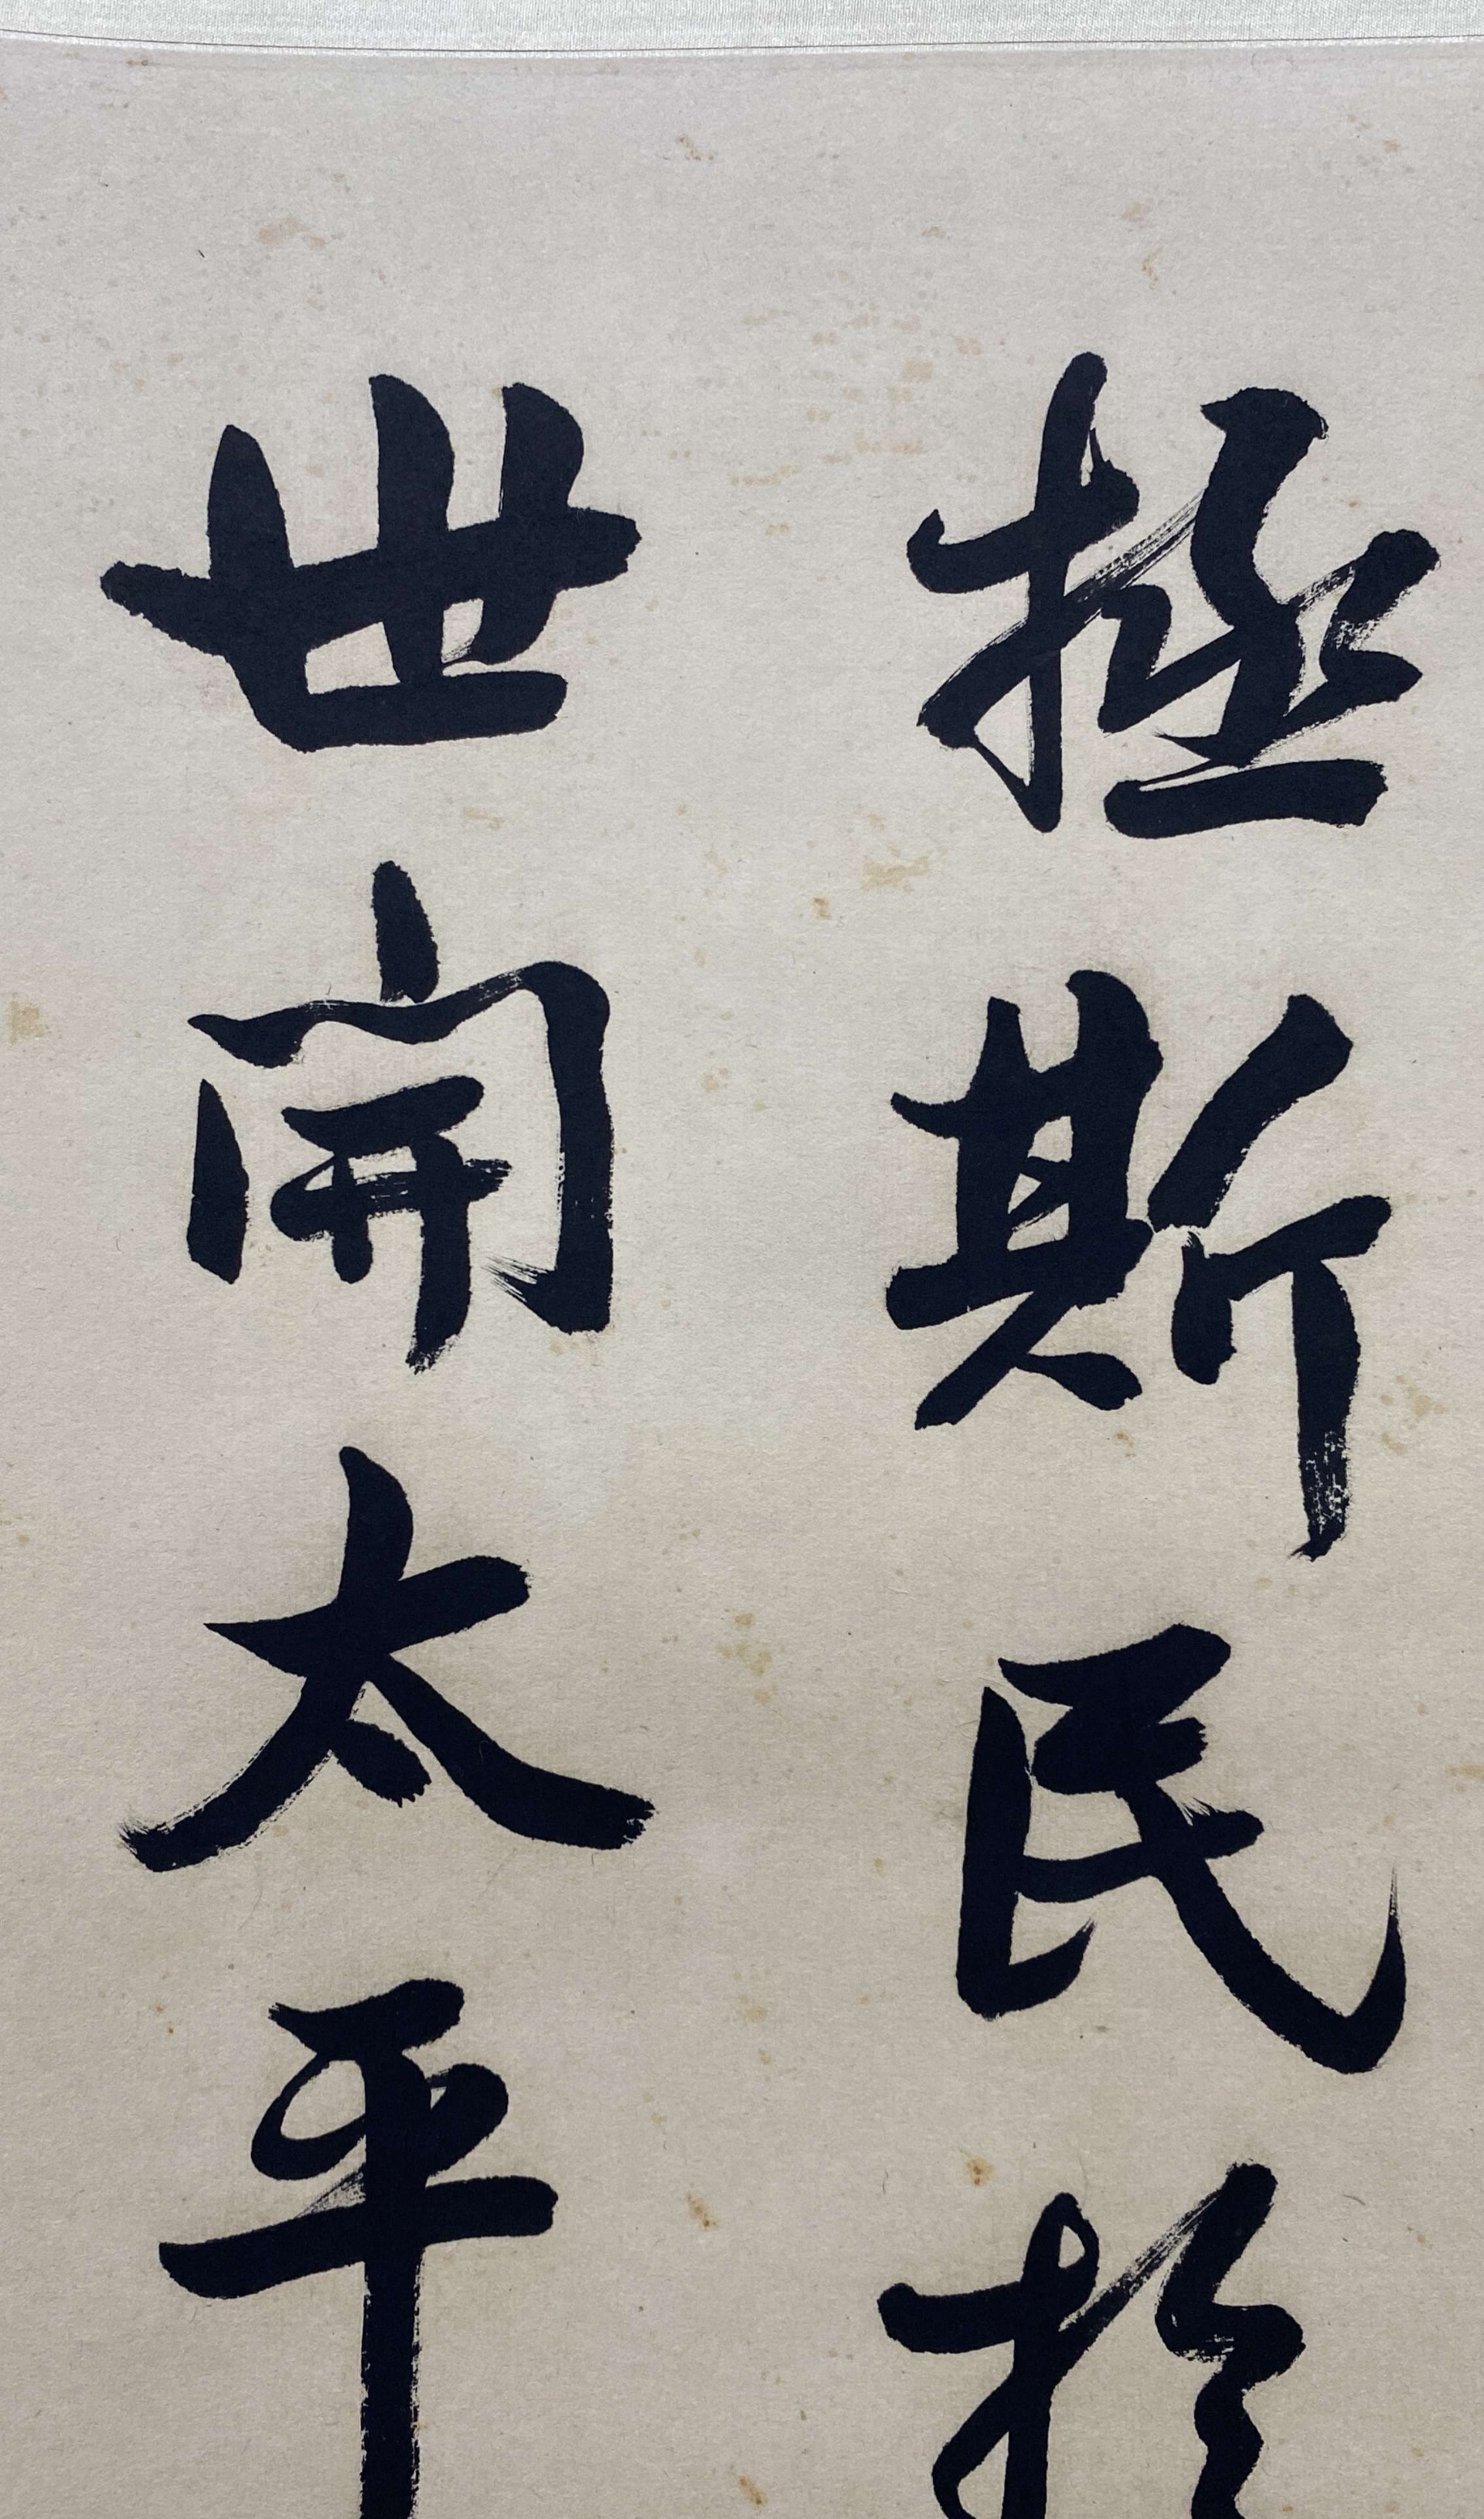 拯斯民於
世開太平